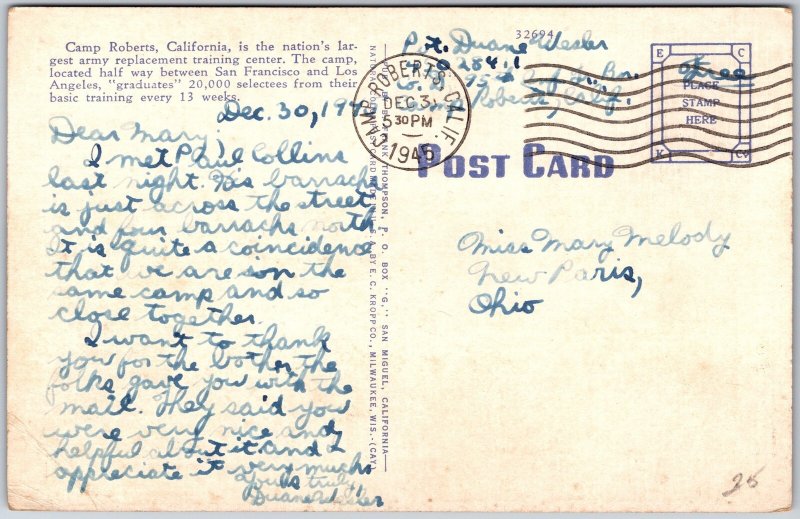 Camp Roberts, California, is the nation's lar-
gest army replacement training center. The camp,
located half way between San Francisco and Los
Angeles, "graduates" 20,000 selectees from their
basic training every 13 weeks.
Dec. 30, 194
Dear Mary:
I met Paul Collins
last night. His barracks
is just across the street
and four barracks north
It is quite a coincidence
that we are on the
same camp and so
close together.
I want to thank
you for the bother the
folks gave you with the
mail. They said you
were very nice and
helpful about it and I
appreciate it very much.
Yours truly,
Duane
THOMPSON, P. O. BOX "G," SAN MIGUEL, CALIFORNIA
BY E. C. KROPP CO., MILWAUKEE, WIS.-(CAY)
32694
Pvt. Duane
Co.
95th
Camp Roberts, Calif.
Free
CAMP ROBERTS, CALIF.
DEC 31
5 30 PM
1945
E C
PLACE
STAMP
HERE
K Co
POST CARD
Miss Mary Melody
New Paris,
Ohio
25